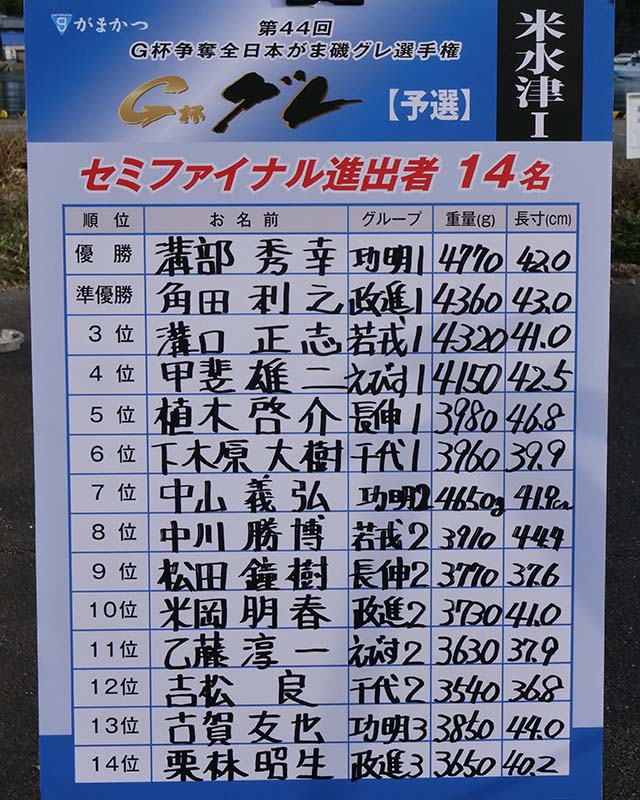 がまかつ
第44回
G杯争奪全日本がま磯グレ選手権
G杯グレ【予選】
米水津I
セミファイナル進出者 14名
順位 お名前 グループ 重量(g) 長寸(cm)
優勝 溝部 秀幸 功明1 4770 42.0
準優勝 角田 利之 政進1 4360 43.0
3位 溝口 正志 若戎1 4320 41.0
4位 甲斐 雄二 えびす1 4150 42.5
5位 植木 啓介 長伸1 3980 46.8
6位 下木原 大樹 千代1 3960 39.9
7位 中山 義弘 功明2 4650g 41.9cm
8位 中川 勝博 若戎2 3910 44.9
9位 松田 鐘樹 長伸2 3770 37.6
10位 米岡 明春 政進2 3730 41.0
11位 乙藤 淳一 えびす2 3630 37.9
12位 吉松 良 千代2 3540 36.8
13位 古賀 友也 功明3 3850 44.0
14位 栗林 昭生 政進3 3650 40.2